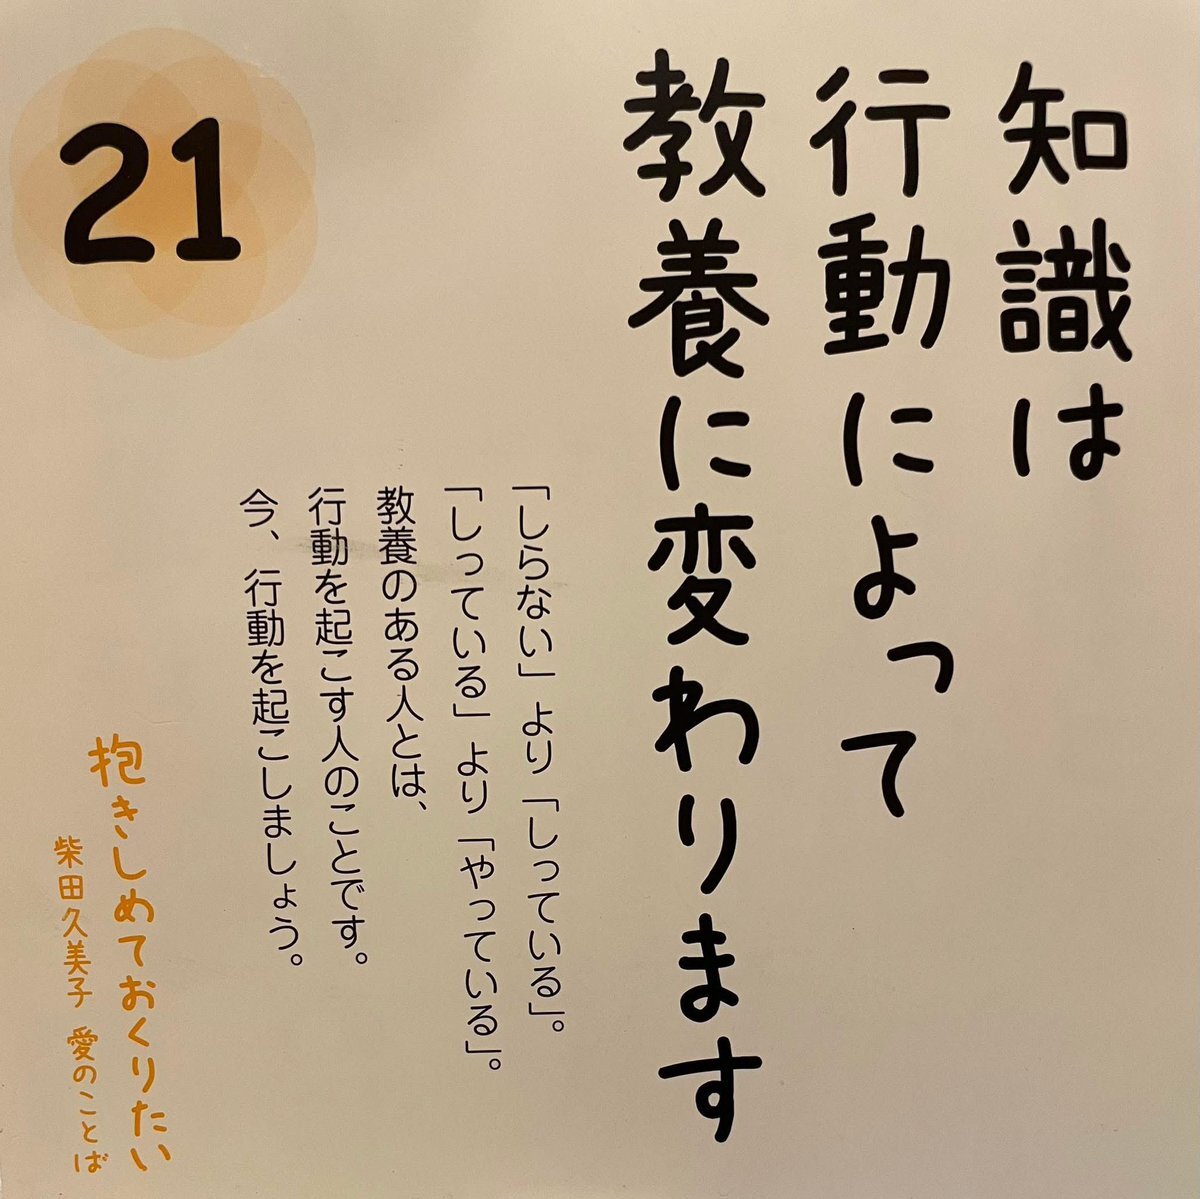 知識は
行動によって
教養に変わります
「しらない」より「しっている」。
「しっている」より「やっている」。
教養のある人とは、
行動を起こす人のことです。
今、行動を起こしましょう。
21
抱きしめておくりたい
柴田久美子 愛のことば